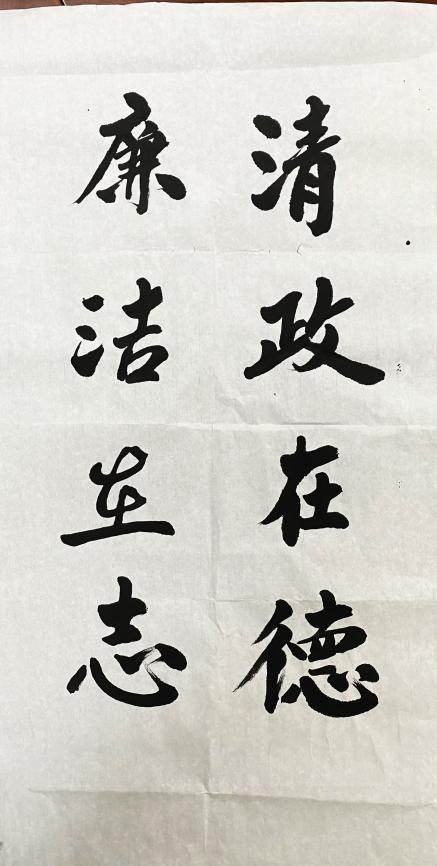 清政在德
廉洁在志